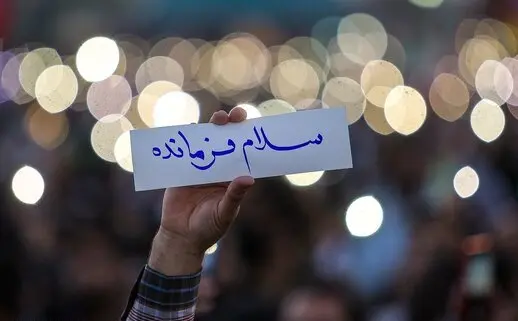 سلام فرمانده